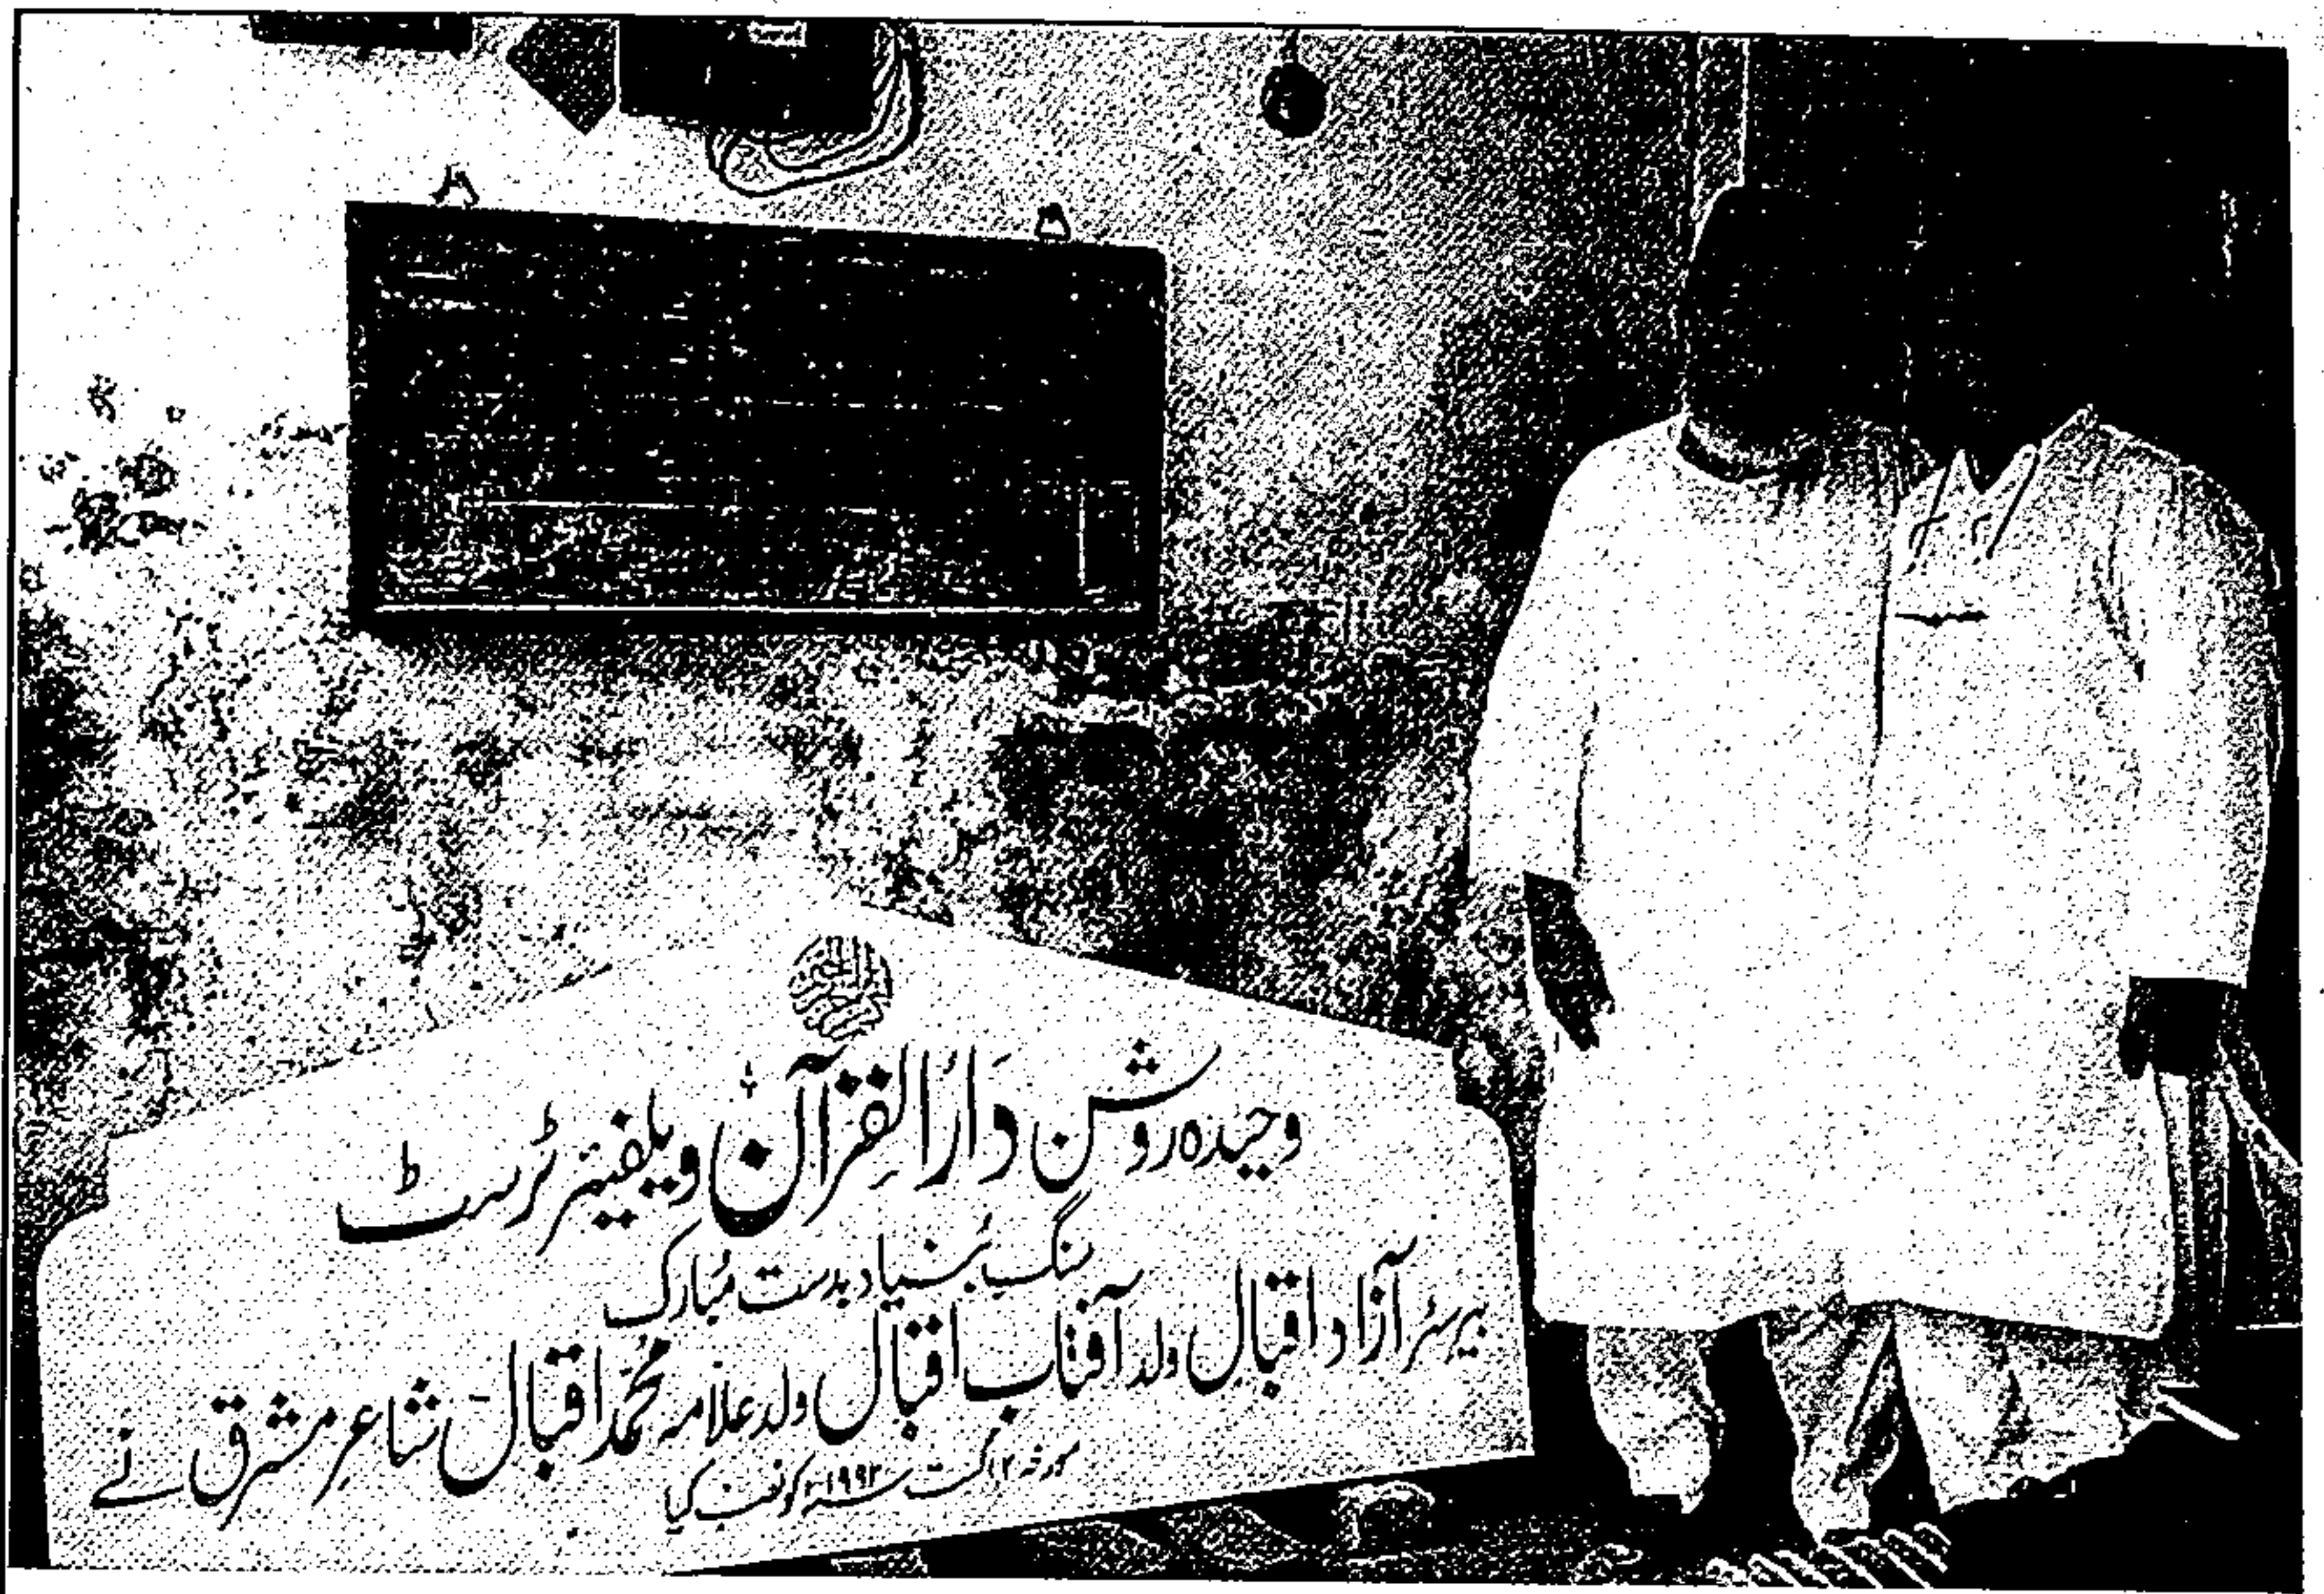 وحیدہ روشن دَارُالقُرآن ویلفیئر ٹرسٹ
سنگِ بُنیاد بدست مُبارک
بیرسٹر آزاد اقبال ولد آفتاب اقبال ولد علامہ مُحمّد اقبال شاعرِ مشرق نے
مورخہ ۱۲ اگست سنہ ۱۹۹۲ء کو نصب کیا